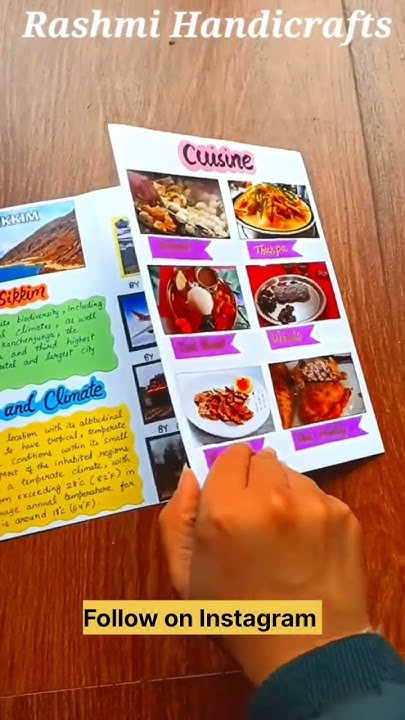 Rashmi Handicrafts
Cuisine
Thukpa
KKIM
Sikkim
its biodiversity, including
al climates, as well
Kanchenjunga, the
and third highest
capital and largest city
BY
BY
BY
and Climate
location with its altitudinal
to have tropical, temperate
conditions within its small
most of the inhabited regions
a temperate climate, with
exceeding 28°c (82°F) in
average annual temperature for
is around 18°c (64°F).
Follow on Instagram